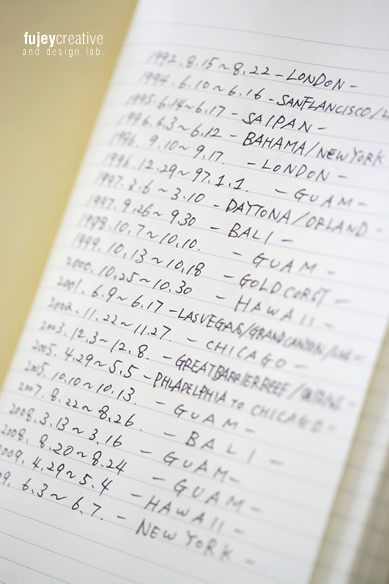 fujeycreative
and design lab.
1992.8.15~8.22 - LONDON -
1994.6.10~6.16 - SANFLANCISCO/
1995.6.14~6.17 - SAIPAN -
1996.6.3~6.12 - BAHAMA/NEWYORK
1996.9.10~9.17. - LONDON -
1996.12.29~97.1.1. - GUAM -
1997.3.6~3.10 - DAYTONA/ORLAND -
1997.9.26~9.30 - BALI -
1998.10.7~10.10. - GUAM -
1999.10.13~10.18 - GOLDCORST -
2000.10.25~10.30 - HAWAII -
2001.6.9~6.17 - LASVEGAS/GRANDCANYON/
2002.11.22~11.27. - CHICAGO -
2003.12.3~12.8. - GREATBARRIERREEF/
2005.4.29~5.5 - PHLADELPHIA TO CHICAGO -
2005.10.10~10.13 - GUAM -
2007.8.22~8.26. - BALI -
2008.3.13~3.16 - GUAM -
2008.8.20~8.24 - GUAM -
2009.4.29~5.4 - HAWAII -
09.6.3~6.7. - NEW YORK -